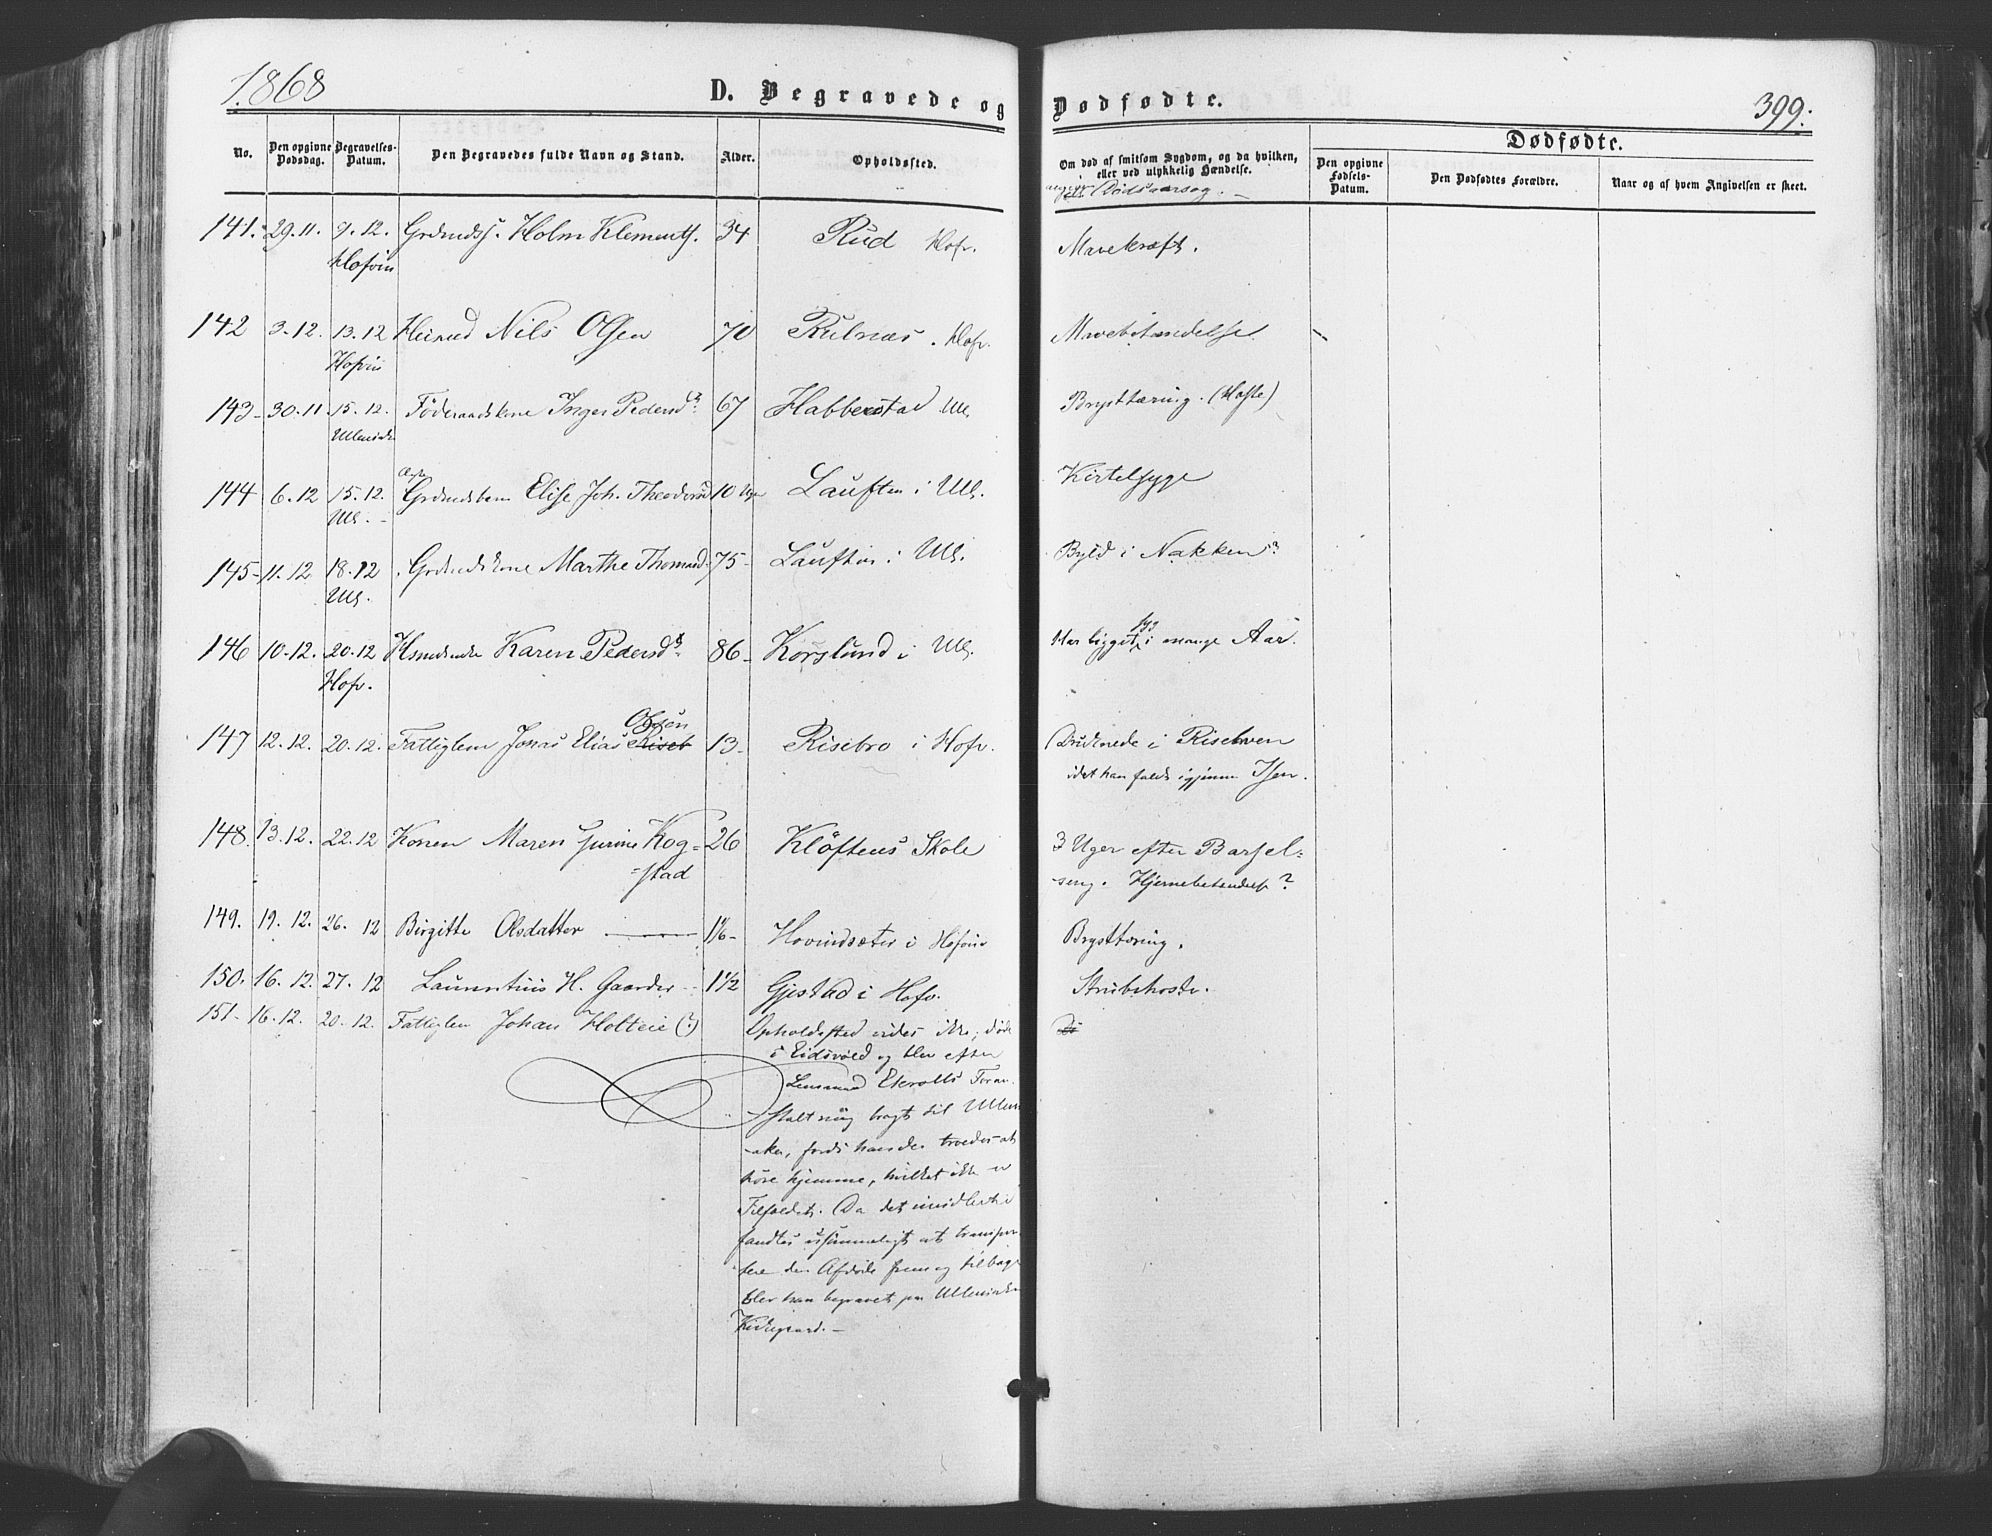 1868
D. Begravede og Dødfødte.
399.
Dødfødte.
No.
Den opgivne Dødsdag.
Begravelses-Datum.
Den Begravedes fulde Navn og Stand.
Alder.
Opholdssted.
Om død af smitsom Sygdom, og da hvilken,
eller ved ulykkelig Hændelse.
Dødsaarsag. —
Den opgivne Fødsels-Datum.
Den Dødfødtes Forældre.
Naar og af hvem Angivelsen er skeet.
141. 29.11. 9.12. Grdmds. Holm Klements. 34 Rud Hofv. Mavekræft.
Hofvin
142 3.12. 13.12 Nils Olsen 70 Rulnæs. Hofv. Mavebetændelse
Hofvin
143 30.11. 15.12. Föderaadskone Inger Pedersdr. 67 Habberstad Ull. Brysttæring. (Hoste)
Ullensaker
144 6.12 15.12. Grdmdsbarn Elise Joh. Theodorsd 10 Uger Lauften i Ull. Kirtelsyge
Ull.
145 11.12 18.12 Grdmdskone Marthe Thomasd. 75 Lauften i Ull. Byld i Nakken?
Ull.
146 10.12. 20.12 Karen Pedersdr. 86 Korslund i Ull. Har ligget syg i mange Aar.
Hofv.
147 12.12. 20.12. Fattiglem Jonas Elias Olsen 13 Risebro i Hofv. Druknede i Riselven
idet han faldt igjennem Isen.
148. 13.12. 22.12 Konen Maren Gurine Kog= 26 Klöftens Skole 3 Uger efter Barsel=
-stad seng. Hjernebetændelse?
149. 19.12. 26.12 Birgitte Olsdatter —— Hovindsæter i Hofvin Brysttæring.
150. 16.12. 27.12 Laurentius H. Gaarder 1 1/2 Gjestad i Hofv. Strubehoste.
151 16.12. 20.12. Fattiglem Johan Holteie (?) Opholdssted vides ikke; døde
i Eidsvold og blev efter
Lensmand Foran-
staltning bragt til Ullens-
aker, fordi han der troedes at
høre hjemme, hvilket ikke er
Tilfældet. Da det imidlertid
fandtes at transpor-
tere den Afdøde frem og tilbage
blev han begravet paa Ullensaker
Kirkegaard. —